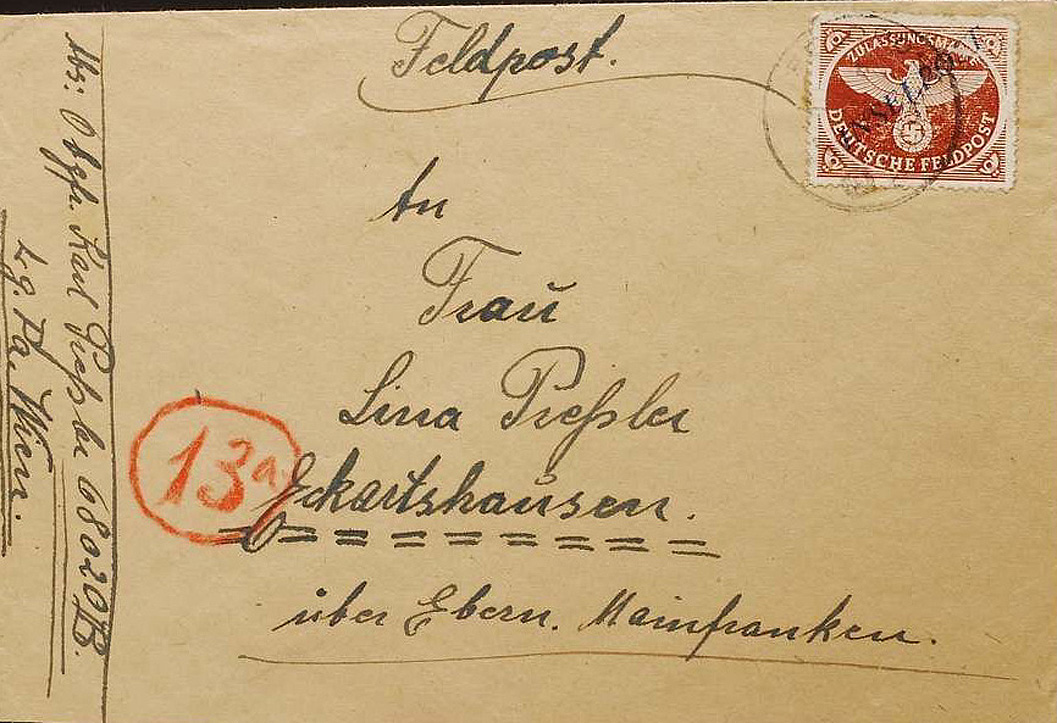 Feldpost.
ZULASSUNGSMARKE
INSELPOST
DEUTSCHE FELDPOST
An
Frau
Lina Preßler
13a
Eckartshausen.
über Ebern. Mainfranken.
Abs: Obgfr. Karl Preßler 68020B.
Lg. Pa. Wien.